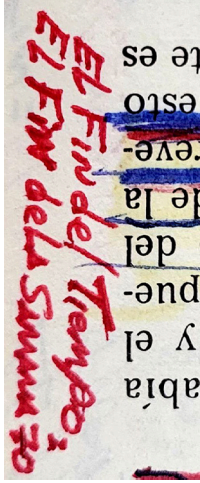 EL Fin del Tiempo:
EL Fin
abía
y el
pue-
del
de la
reve-
esto
te es